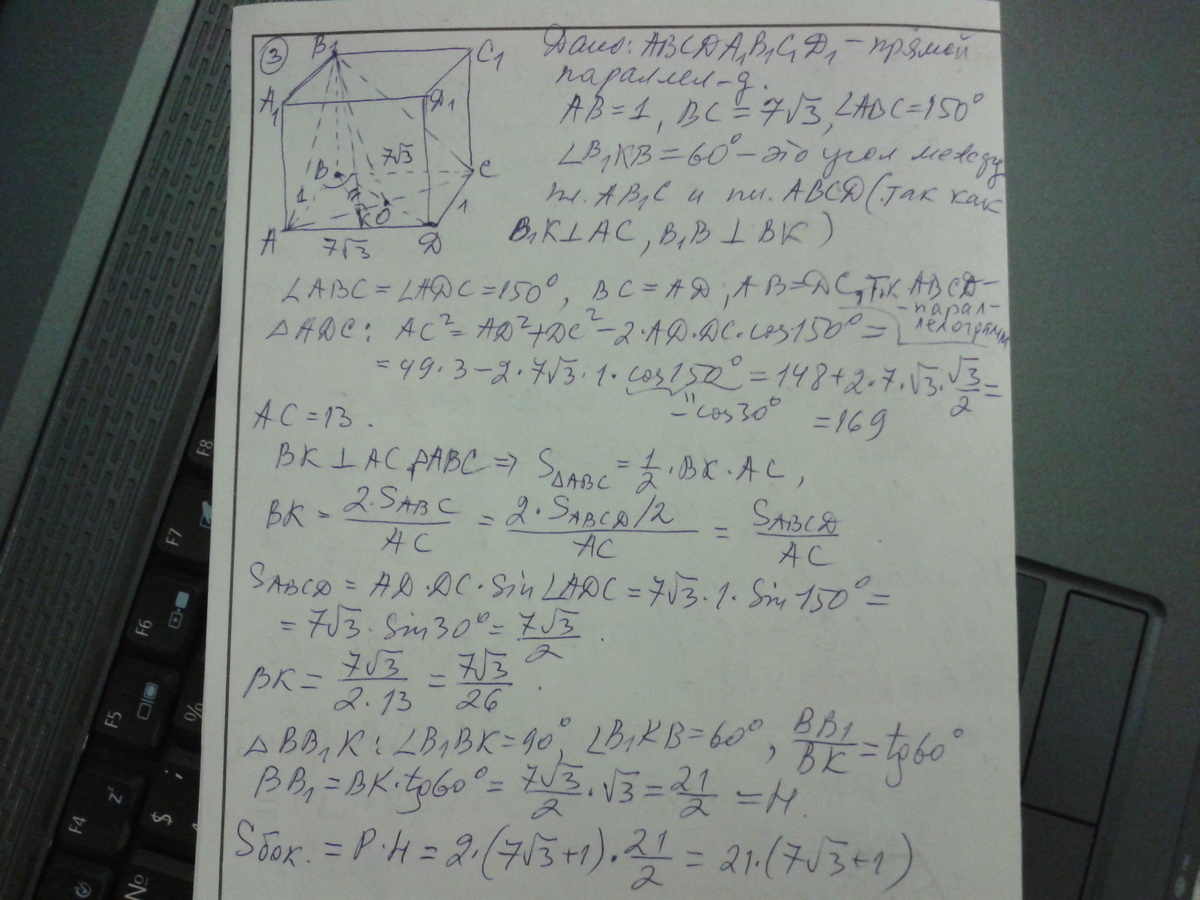 ③
B₁
C₁
A₁
D₁
7√3
B
C
1
K
O
1
A
7√3
D
Дано: ABCDA₁B₁C₁D₁ – прямой
параллел-д.
AB=1, BC=7√3, ∠ABC=150°
∠B₁KB=60° – это угол между
пл. AB₁C и пл. ABCD (так как
B₁K⊥AC, B₁B⊥BK)
∠ABC=∠ADC=150°, BC=AD, AB=DC, т.к ABCD-
-парал-
лелограмм
△ADC: AC²=AD²+DC²-2·AD·DC·cos150°=
=49·3-2·7√3·1·cos150°=148+2·7·√3·√3/2=
-cos30°
=169
AC=13.
BK⊥AC, △ABC ⇒ S△ABC=1/2·BK·AC,
BK=2·SABC/AC=2·SABCD/2/AC=SABCD/AC
SABCD=AD·DC·sin∠ADC=7√3·1·sin150°=
=7√3·sin30°=7√3/2.
BK=7√3/2·13=7√3/26.
△BB₁K: ∠B₁BK=90°, ∠B₁KB=60°, BB₁/BK=tg60°
BB₁=BK·tg60°=7√3/2·√3=21/2=H.
Sбок.=P·H=2·(7√3+1)·21/2=21·(7√3+1)
F8
F7
F6
F5
F4
%
;
$
z
№